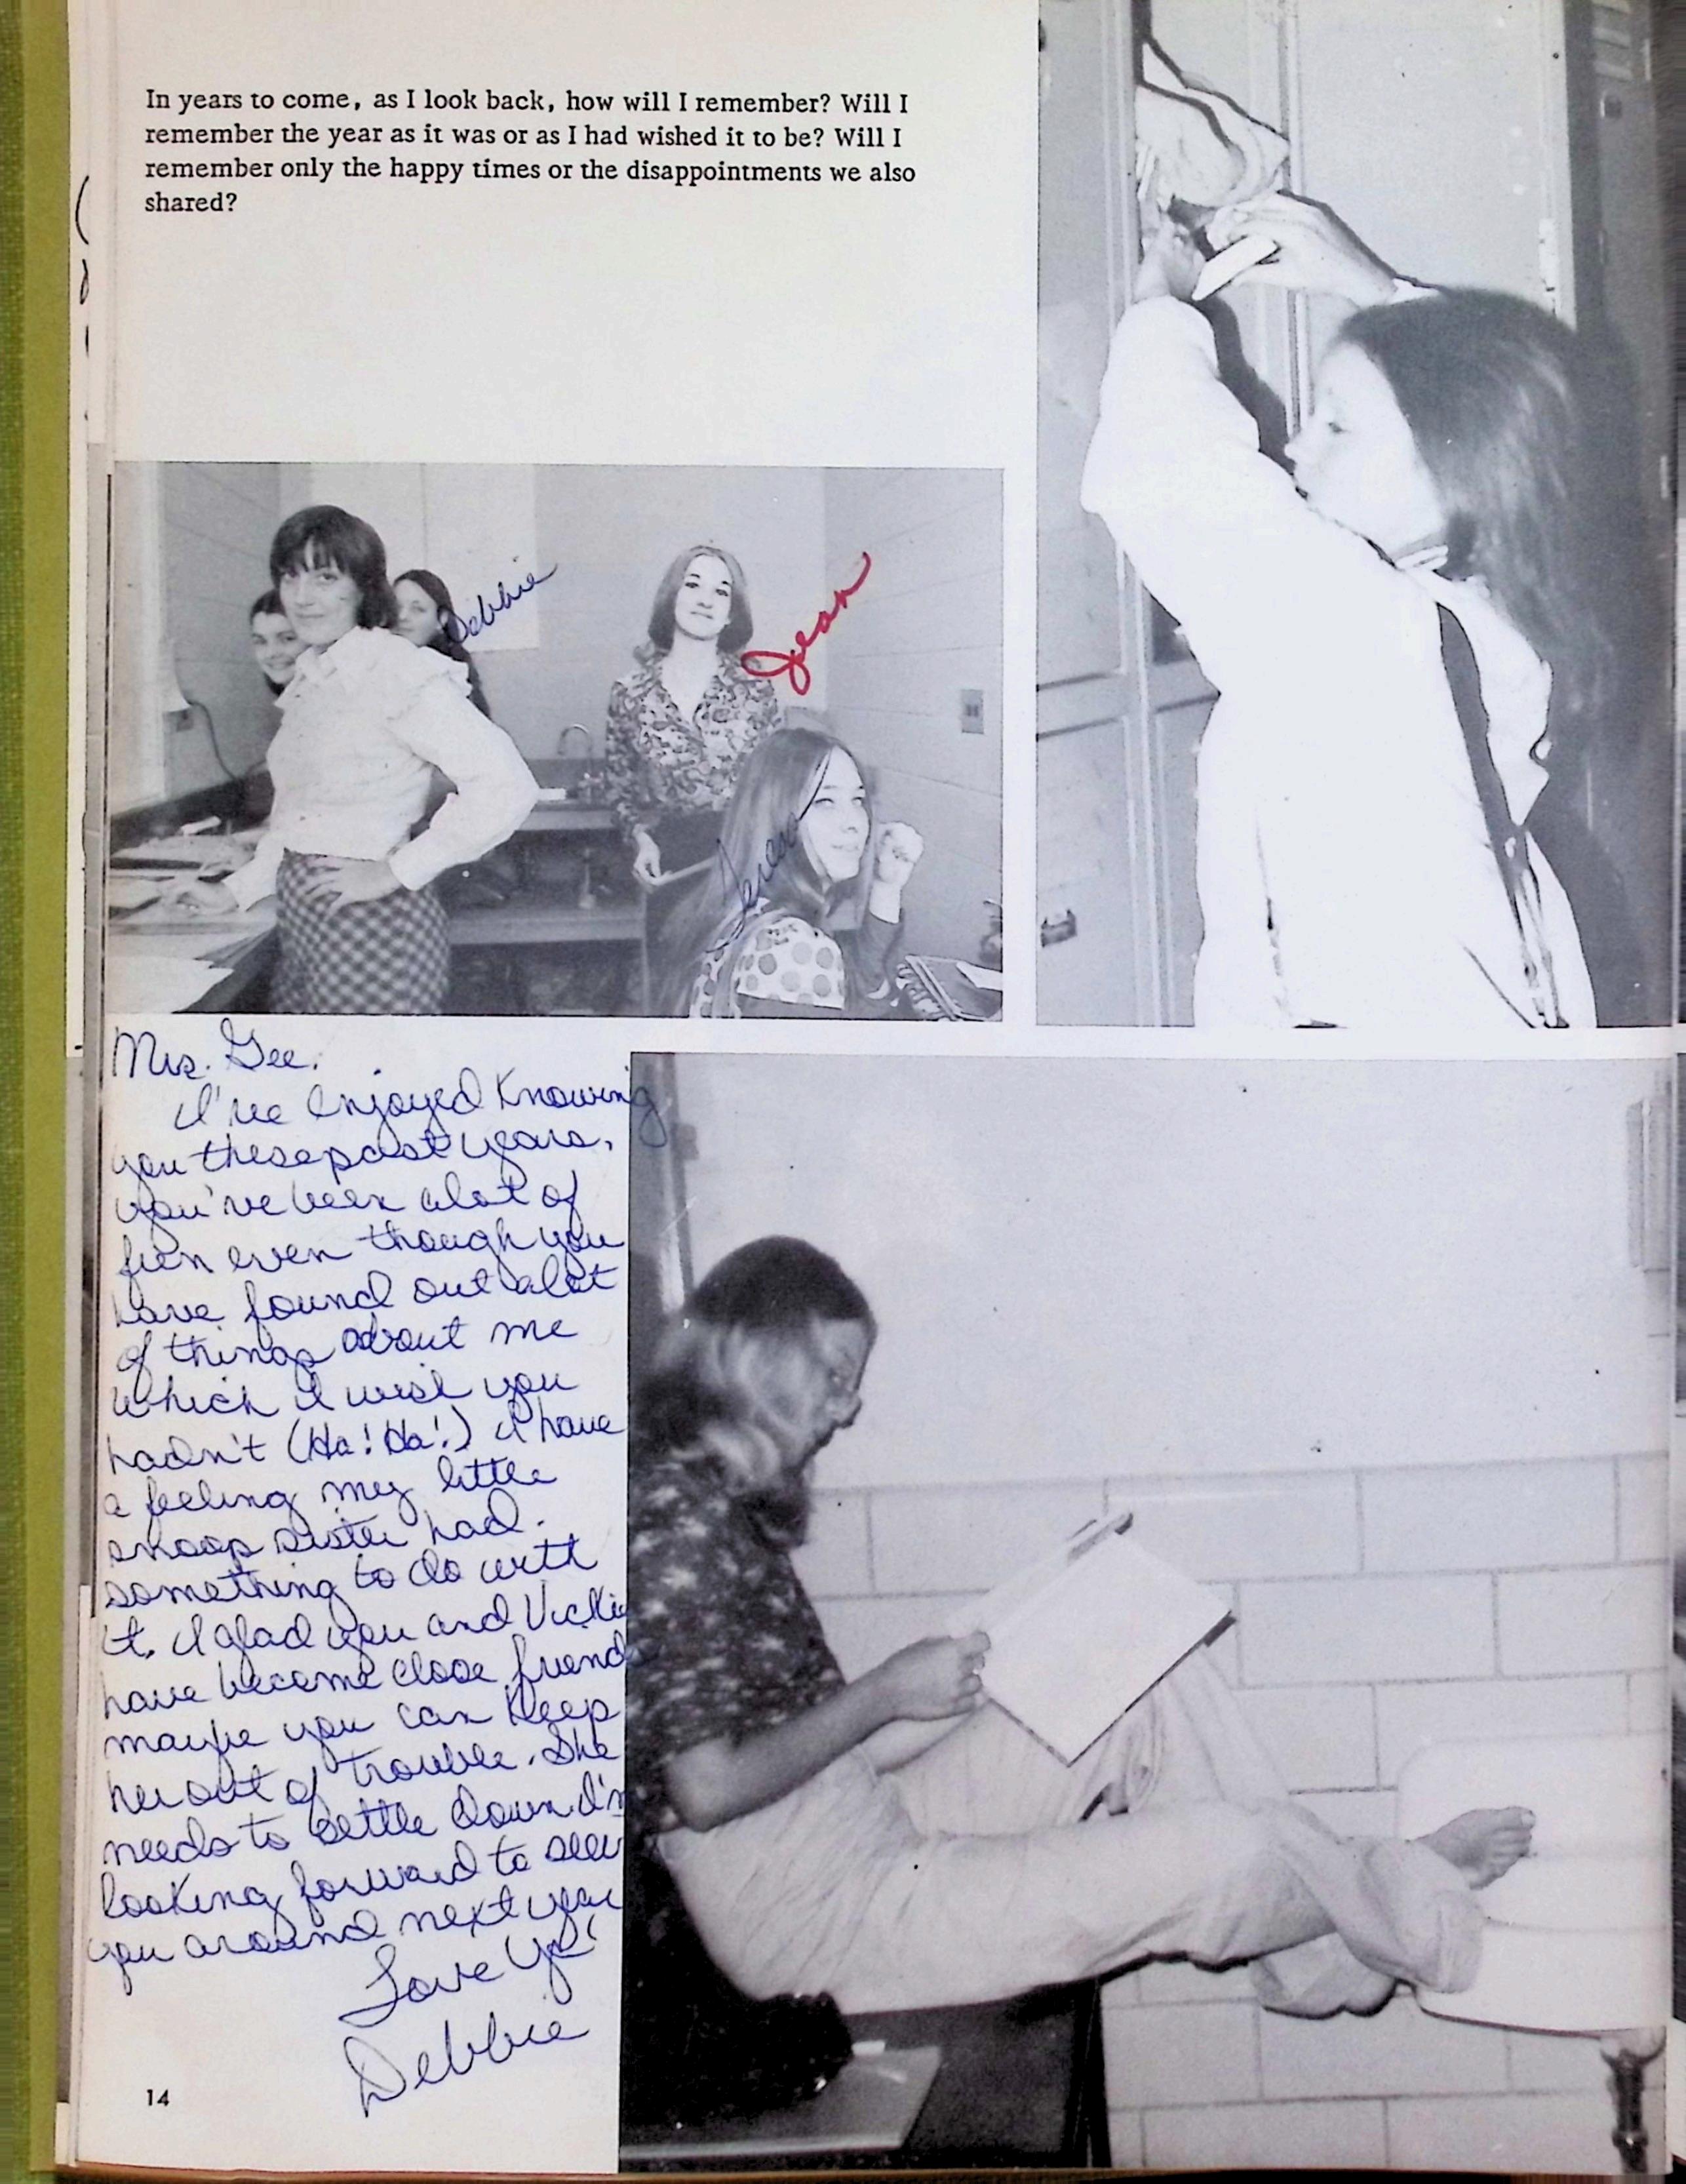 In years to come, as I look back, how will I remember? Will I
remember the year as it was or as I had wished it to be? Will I
remember only the happy times or the disappointments we also
shared?
Debbie
Jean
Mrs. Gee,
I've enjoyed knowing
you these past years,
you've been alot of
fun even though you
have found out alot
of things about me
which I wish you
hadn't (Ha! Ha!) I have
a feeling my little
snoop sister had
something to do with
it. I glad you and Vickie
have become close friends
maybe you can keep
her out of trouble. She
needs to settle down. I'm
looking forward to seein
you around next year
Love Ya'
Debbie
14